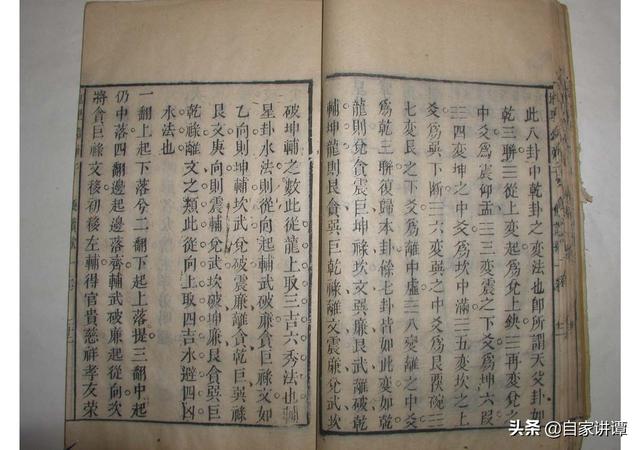 此八卦中乾卦之變法也卽所謂天爻卦如
乾三聯☰從上變起爲兌上缺☱再變兌之
中爻爲震仰盂☳三變震之下爻爲坤六段
☷四變坤之中爻爲坎中滿☵五變坎之上
爻爲巽下斷☴六變巽之中爻爲艮覆碗☶
七變艮之下爻爲離中虛☲八變離之中爻
爲乾三聯復歸本卦餘七卦皆如此變如乾
龍則兌貪震巨坤祿坎文巽廉艮武離破乾
輔坤龍則艮貪巽巨乾祿離文震廉兌武坎
破坤輔之數此從龍上取三吉六秀法也輔
星卦水法則從向起輔武破廉貪巨祿文如
乙向則坤輔坎武兌破震廉離貪乾巨巽祿
艮文庚向則震輔兌武坎破坤廉艮貪巽巨
乾祿離文之類此從向上取四吉水避四凶
水法也
一翻上起下落兮二翻下起上落提三翻中起
仍中落四翻邊起邊落齊輔武破廉起從向次
將貪巨祿文後初移左輔得官貴慈祥孝友榮
头条 @自家讲谭